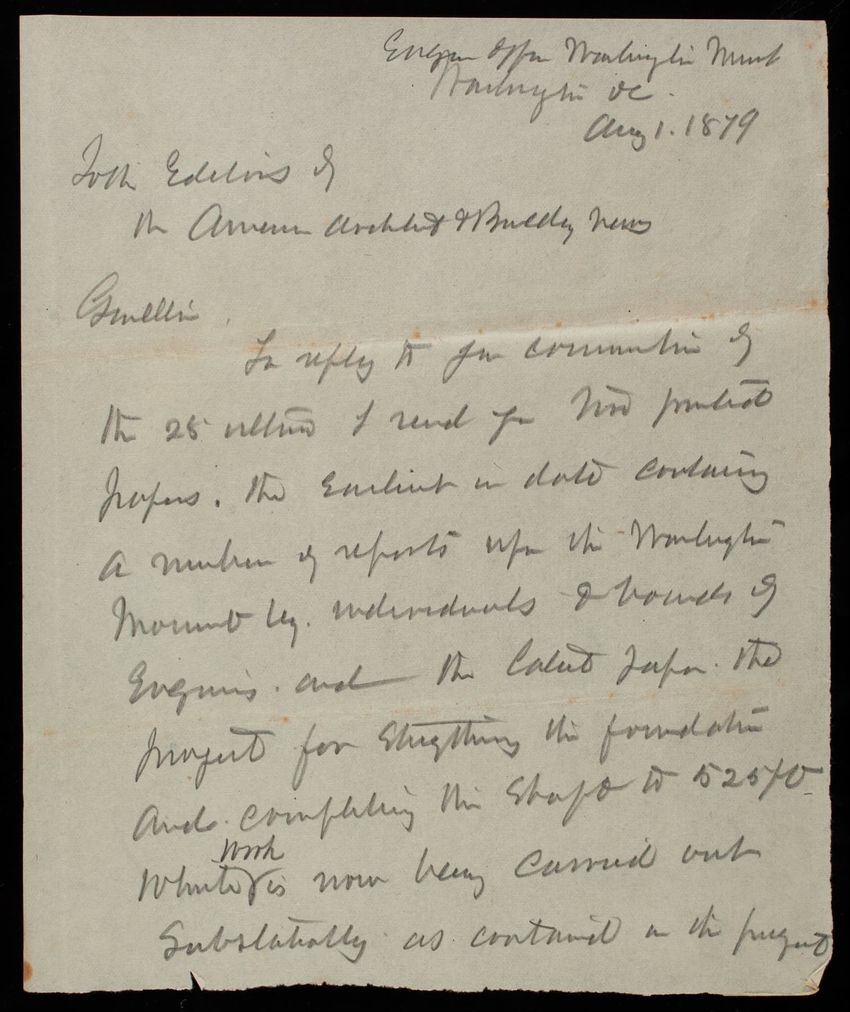 Engineer Office Washington Mnmt
Washington DC.
Aug 1. 1879
To the Editors of
the American Architect & Building News
Gentlemen
In reply to your communication of
the 25 ultimo I send you two printed
papers. the Earliest in date containing
a number of reports upon the Washington
Monument by individuals & boards of
Engineers. and the latest paper. the
project for Strengthening the foundation
and completing the Shaft to 525 ft
Which work is now being carried out
Substantially as contained in the project